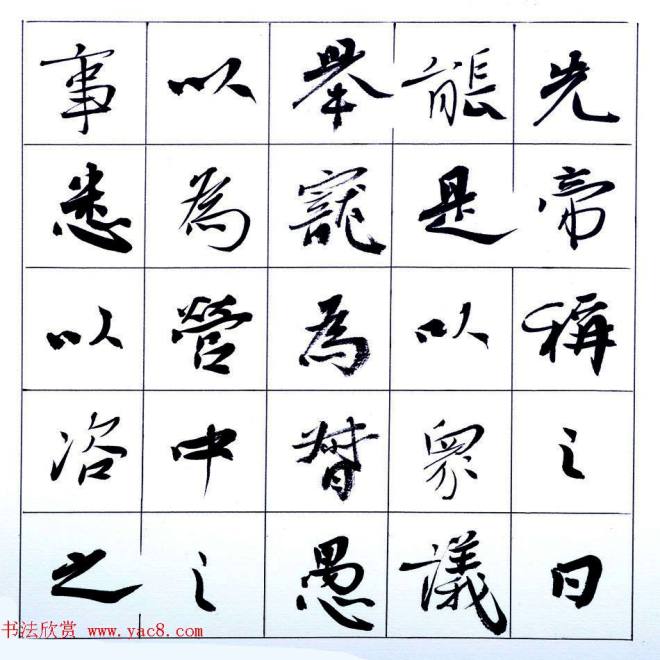 先帝稱之曰
能是以衆議
舉寵為督愚
以為營中之
事悉以咨之
书法欣赏 www.yac8.com